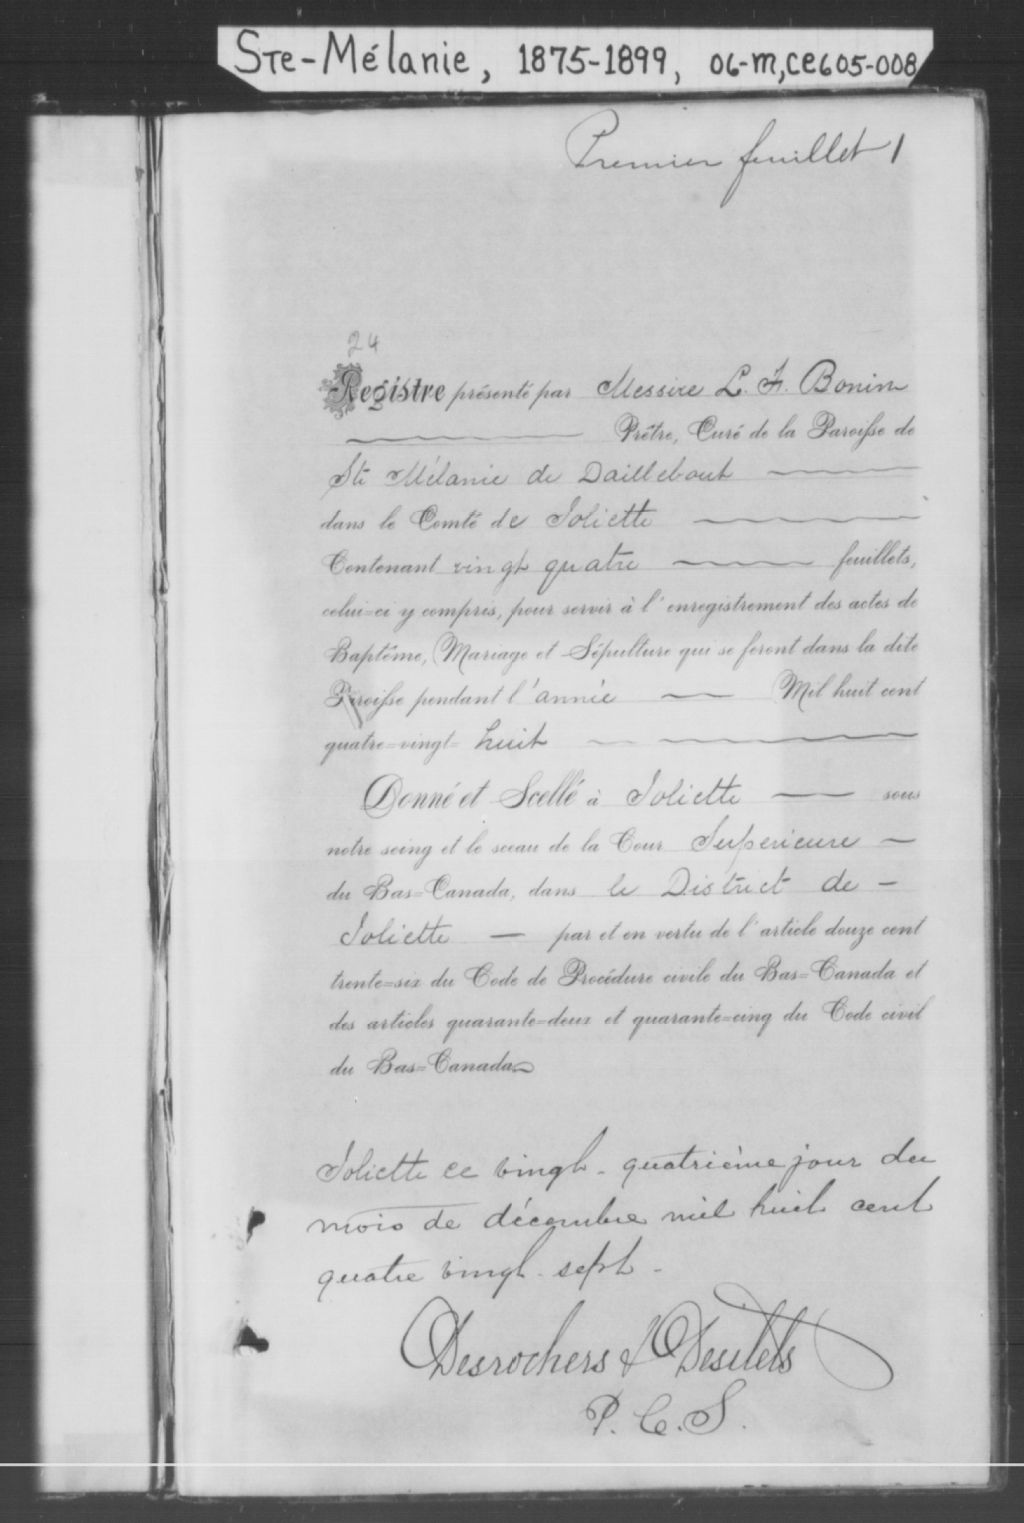 Ste-Mélanie, 1875-1899, 06-M,CE605-008
Premier feuillet 1
24
Registre présenté par Messire L. F. Bonin
Prêtre, Curé de la Paroisse de
Ste Mélanie de Daillebout
dans le Comté de Joliette
Contenant vingt quatre feuillets,
celui=ci y compris, pour servir à l'enregistrement des actes de
Baptême, Mariage et Sépulture qui se feront dans la dite
Paroisse pendant l'année Mil huit cent
quatre=vingt= huit
Donné et Scellé à Joliette sous
notre seing et le sceau de la Cour Superieure
du Bas=Canada, dans le District de
Joliette par et en vertu de l'article douze cent
trente=six du Code de Procédure civile du Bas=Canada et
des articles quarante=deux et quarante=cinq du Code civil
du Bas=Canada
Joliette ce vingt-quatrième jour du
mois de décembre mil huit cent
quatre vingt-sept-
Desrochers & Desilets
P. C. S.